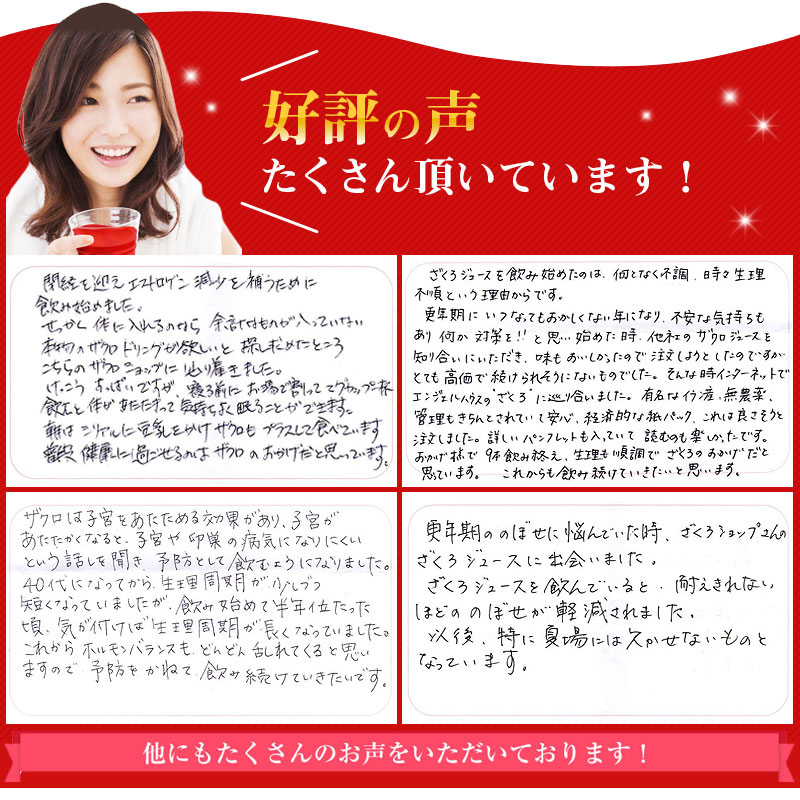 好評の声
たくさん頂いています！
閉経を迎えエストロゲン減少を補うために
飲み始めました。
せっかく体に入れるのなら 余計なものが入っていない
本物のザクロドリンクが欲しいと 探し求めたところ
こちらのザクロショップに辿り着きました。
けっこう すっぱいですが、寝る前に お湯で割ってマグカップ一杯
飲むと体があたたまって気持ちよく眠ることができます。
朝はシリアルに豆乳をかけザクロもプラスして食べています
毎日 健康に過ごせるのはザクロのおかげだと思っています。
ざくろジュースを飲み始めたのは、何となく不調、時々生理
不順という理由からです。
更年期に いつなってもおかしくない年になり、不安な気持ちも
あり 何か 対策を!! と思い始めた時、他社のザクロジュースを
知り合いにいただき、味もおいしかったので注文しようとしたのですが
とても高価で続けられそうにないものでした。そんな時インターネットで
エンジェルハウスの"ざくろ"に巡り合いました。有名なイラン産、無農薬、
管理もきちんとされていて安心、経済的な紙パック、これは良さそうと
注文しました。詳しいパンフレットも入っていて 読むのも楽しかったです。
おかげ様で 9本飲み終え、生理も順調で ざくろのおかげだと
思っています。 これからも飲み続けていきたいと思います。
ザクロは子宮をあたためる効果があり、子宮が
あたたかくなると、子宮や卵巣の病気になりにくい
という話しを聞き、予防として飲むようになりました。
40代になってから、生理周期が少しづつ
短くなっていましたが、飲み始めて半年位たった
頃、気が付けば生理周期が長くなっていました。
これから ホルモンバランスも、どんどん乱れてくると思い
ますので、予防をかねて、飲み続けていきたいです。
更年期ののぼせに悩んでいた時、ざくろショップさんの
ざくろジュースに出会いました。
ざくろジュースを飲んでいると、耐えきれない
ほどののぼせが軽減されました。
以後、特に夏場には欠かせないものと
なっています。
他にもたくさんのお声をいただいております！